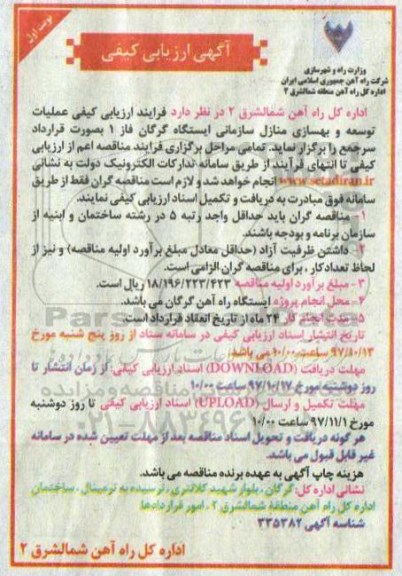 نوبت اول
آگهی ارزیابی کیفی
وزارت راه و شهرسازی
شرکت راه آهن جمهوری اسلامی ایران
اداره کل راه آهن منطقه شمالشرق ۲
اداره کل راه آهن شمالشرق ۲ در نظر دارد فرایند ارزیابی کیفی عملیات
توسعه و بهسازی منازل سازمانی ایستگاه گرگان فاز ۱ بصورت قرارداد
سرجمع را برگزار نماید. تمامی مراحل برگزاری فرایند مناقصه اعم از ارزیابی
کیفی تا انتهای فرآیند از طریق سامانه تدارکات الکترونیک دولت به نشانی
www.setadiran.ir انجام خواهد شد و لازم است مناقصه گران فقط از طریق
سامانه فوق مبادرت به دریافت و تکمیل اسناد ارزیابی کیفی نمایند.
۱- مناقصه گران باید حداقل واجد رتبه ۵ در رشته ساختمان و ابنیه از
سازمان برنامه و بودجه باشند.
۲- داشتن ظرفیت آزاد (حداقل معادل مبلغ برآورد اولیه مناقصه) و نیز از
لحاظ تعداد کار، برای مناقصه گران الزامی است.
۳- مبلغ برآورد اولیه مناقصه ۱۸/۱۹۶/۲۲۳/۴۲۳ ریال است.
۴- محل انجام پروژه ایستگاه راه آهن گرگان می باشد.
۵- مدت انجام کار ۲۴ ماه از تاریخ انعقاد قرارداد است.
تاریخ انتشار اسناد ارزیابی کیفی در سامانه ستاد از روز پنج شنبه مورخ
۹۷/۱۰/۱۳ ساعت ۱۰/۰۰ می باشد.
مهلت دریافت (DOWNLOAD) اسناد ارزیابی کیفی: از زمان انتشار تا
روز دوشنبه مورخ ۹۷/۱۰/۱۷ ساعت ۱۰/۰۰
مهلت تکمیل و ارسال (UPLOAD) اسناد ارزیابی کیفی تا روز دوشنبه
مورخ ۹۷/۱۱/۱ ساعت ۱۰/۰۰
هر گونه دریافت و تحویل اسناد مناقصه بعد از مهلت تعیین شده در سامانه
غیر قابل قبول می باشد.
هزینه چاپ آگهی به عهده برنده مناقصه می باشد.
نشانی اداره کل: گرگان، بلوار شهید کلانتری، نرسیده به ترمینال، ساختمان
اداره کل راه آهن منطقه شمالشرق ۲، امور قراردادها
شناسه آگهی ۳۳۵۳۸۲
اداره کل راه آهن شمالشرق ۲